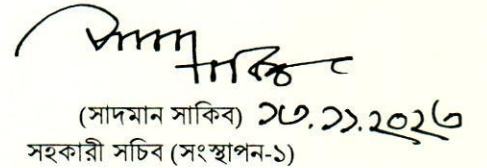 (সাদমান সাকিব) ১৩.১১.২০২৩
সহকারী সচিব (সংস্থাপন-১)